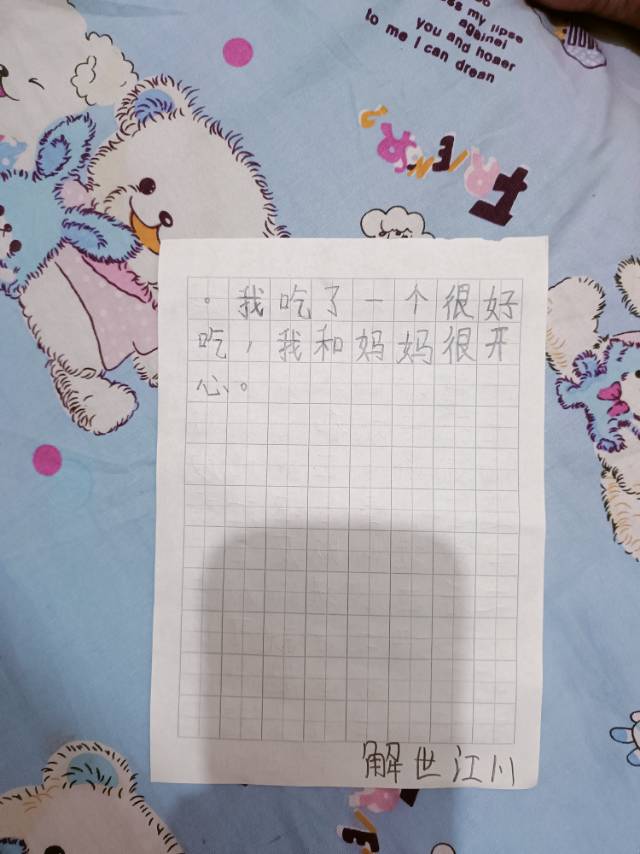 ss my lipse
againei
you and hoaer
to me I can drean
。我吃了一个很好
吃，我和妈妈很开
心。
解世江川